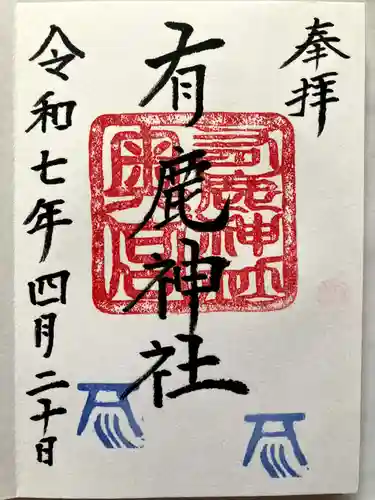 奉拝
有鹿神社
有鹿神社
令和七年四月二十日